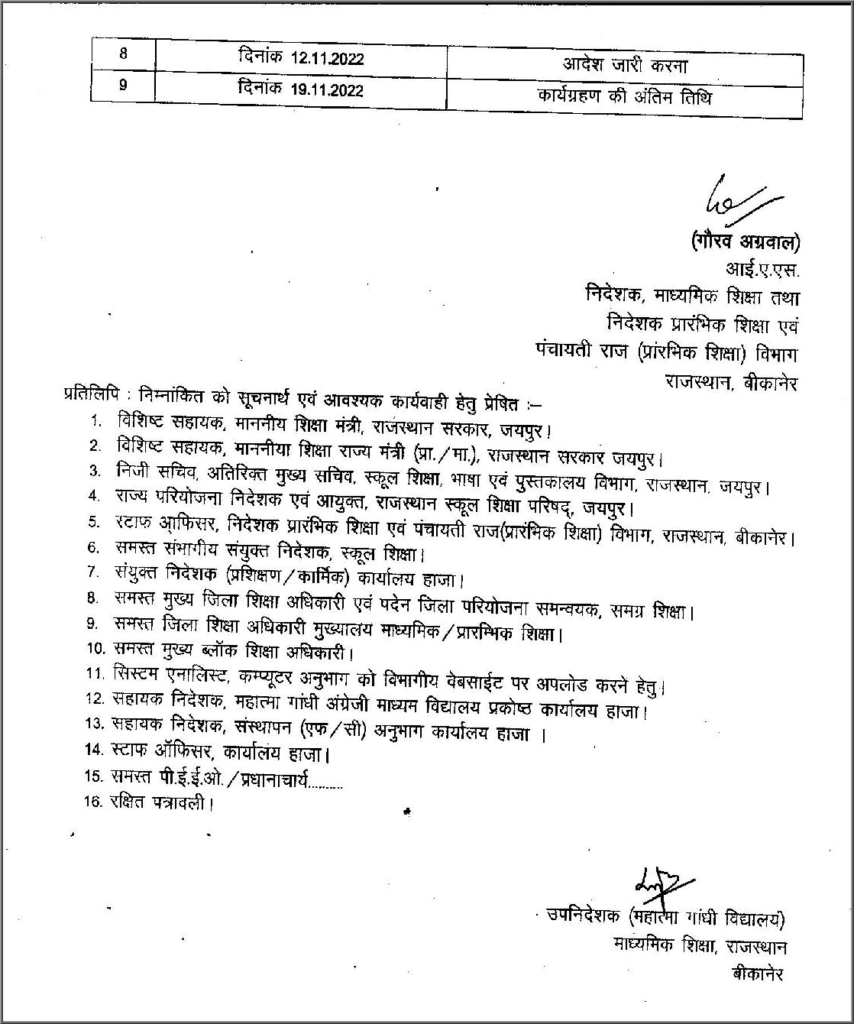 8 दिनांक 12.11.2022 आदेश जारी करना
9 दिनांक 19.11.2022 कार्यग्रहण की अंतिम तिथि
(गौरव अग्रवाल)
आई.ए.एस.
निदेशक, माध्यमिक शिक्षा तथा
निदेशक प्रारंभिक शिक्षा एवं
पंचायती राज (प्रांरभिक शिक्षा) विभाग
राजस्थान, बीकानेर
प्रतिलिपि : निम्नांकित को सूचनार्थ एवं आवश्यक कार्यवाही हेतु प्रेषित :–
1. विशिष्ट सहायक, माननीय शिक्षा मंत्री, राजस्थान सरकार, जयपुर।
2. विशिष्ट सहायक, माननीया शिक्षा राज्य मंत्री (प्रा./मा.), राजस्थान सरकार जयपुर।
3. निजी सचिव, अतिरिक्त मुख्य सचिव, स्कूल शिक्षा, भाषा एवं पुस्तकालय विभाग, राजस्थान, जयपुर।
4. राज्य परियोजना निदेशक एवं आयुक्त, राजस्थान स्कूल शिक्षा परिषद्, जयपुर।
5. स्टाफ आफिसर, निदेशक प्रारंभिक शिक्षा एवं पंचायती राज(प्रारंभिक शिक्षा) विभाग, राजस्थान, बीकानेर।
6. समस्त संभागीय संयुक्त निदेशक, स्कूल शिक्षा।
7. संयुक्त निदेशक (प्रशिक्षण/कार्मिक) कार्यालय हाजा।
8. समस्त मुख्य जिला शिक्षा अधिकारी एवं पदेन जिला परियोजना समन्वयक, समग्र शिक्षा।
9. समस्त जिला शिक्षा अधिकारी मुख्यालय माध्यमिक/प्रारम्भिक शिक्षा।
10. समस्त मुख्य ब्लॉक शिक्षा अधिकारी।
11. सिस्टम एनालिस्ट, कम्प्यूटर अनुभाग को विभागीय वेबसाईट पर अपलोड करने हेतु।
12. सहायक निदेशक, महात्मा गांधी अंग्रेजी माध्यम विद्यालय प्रकोष्ठ कार्यालय हाजा।
13. सहायक निदेशक, संस्थापन (एफ/सी) अनुभाग कार्यालय हाजा ।
14. स्टाफ ऑफिसर, कार्यालय हाजा।
15. समस्त पी.ई.ई.ओ./प्रधानाचार्य.........
16. रक्षित पत्रावली।
उपनिदेशक (महात्मा गांधी विद्यालय)
माध्यमिक शिक्षा, राजस्थान
बीकानेर